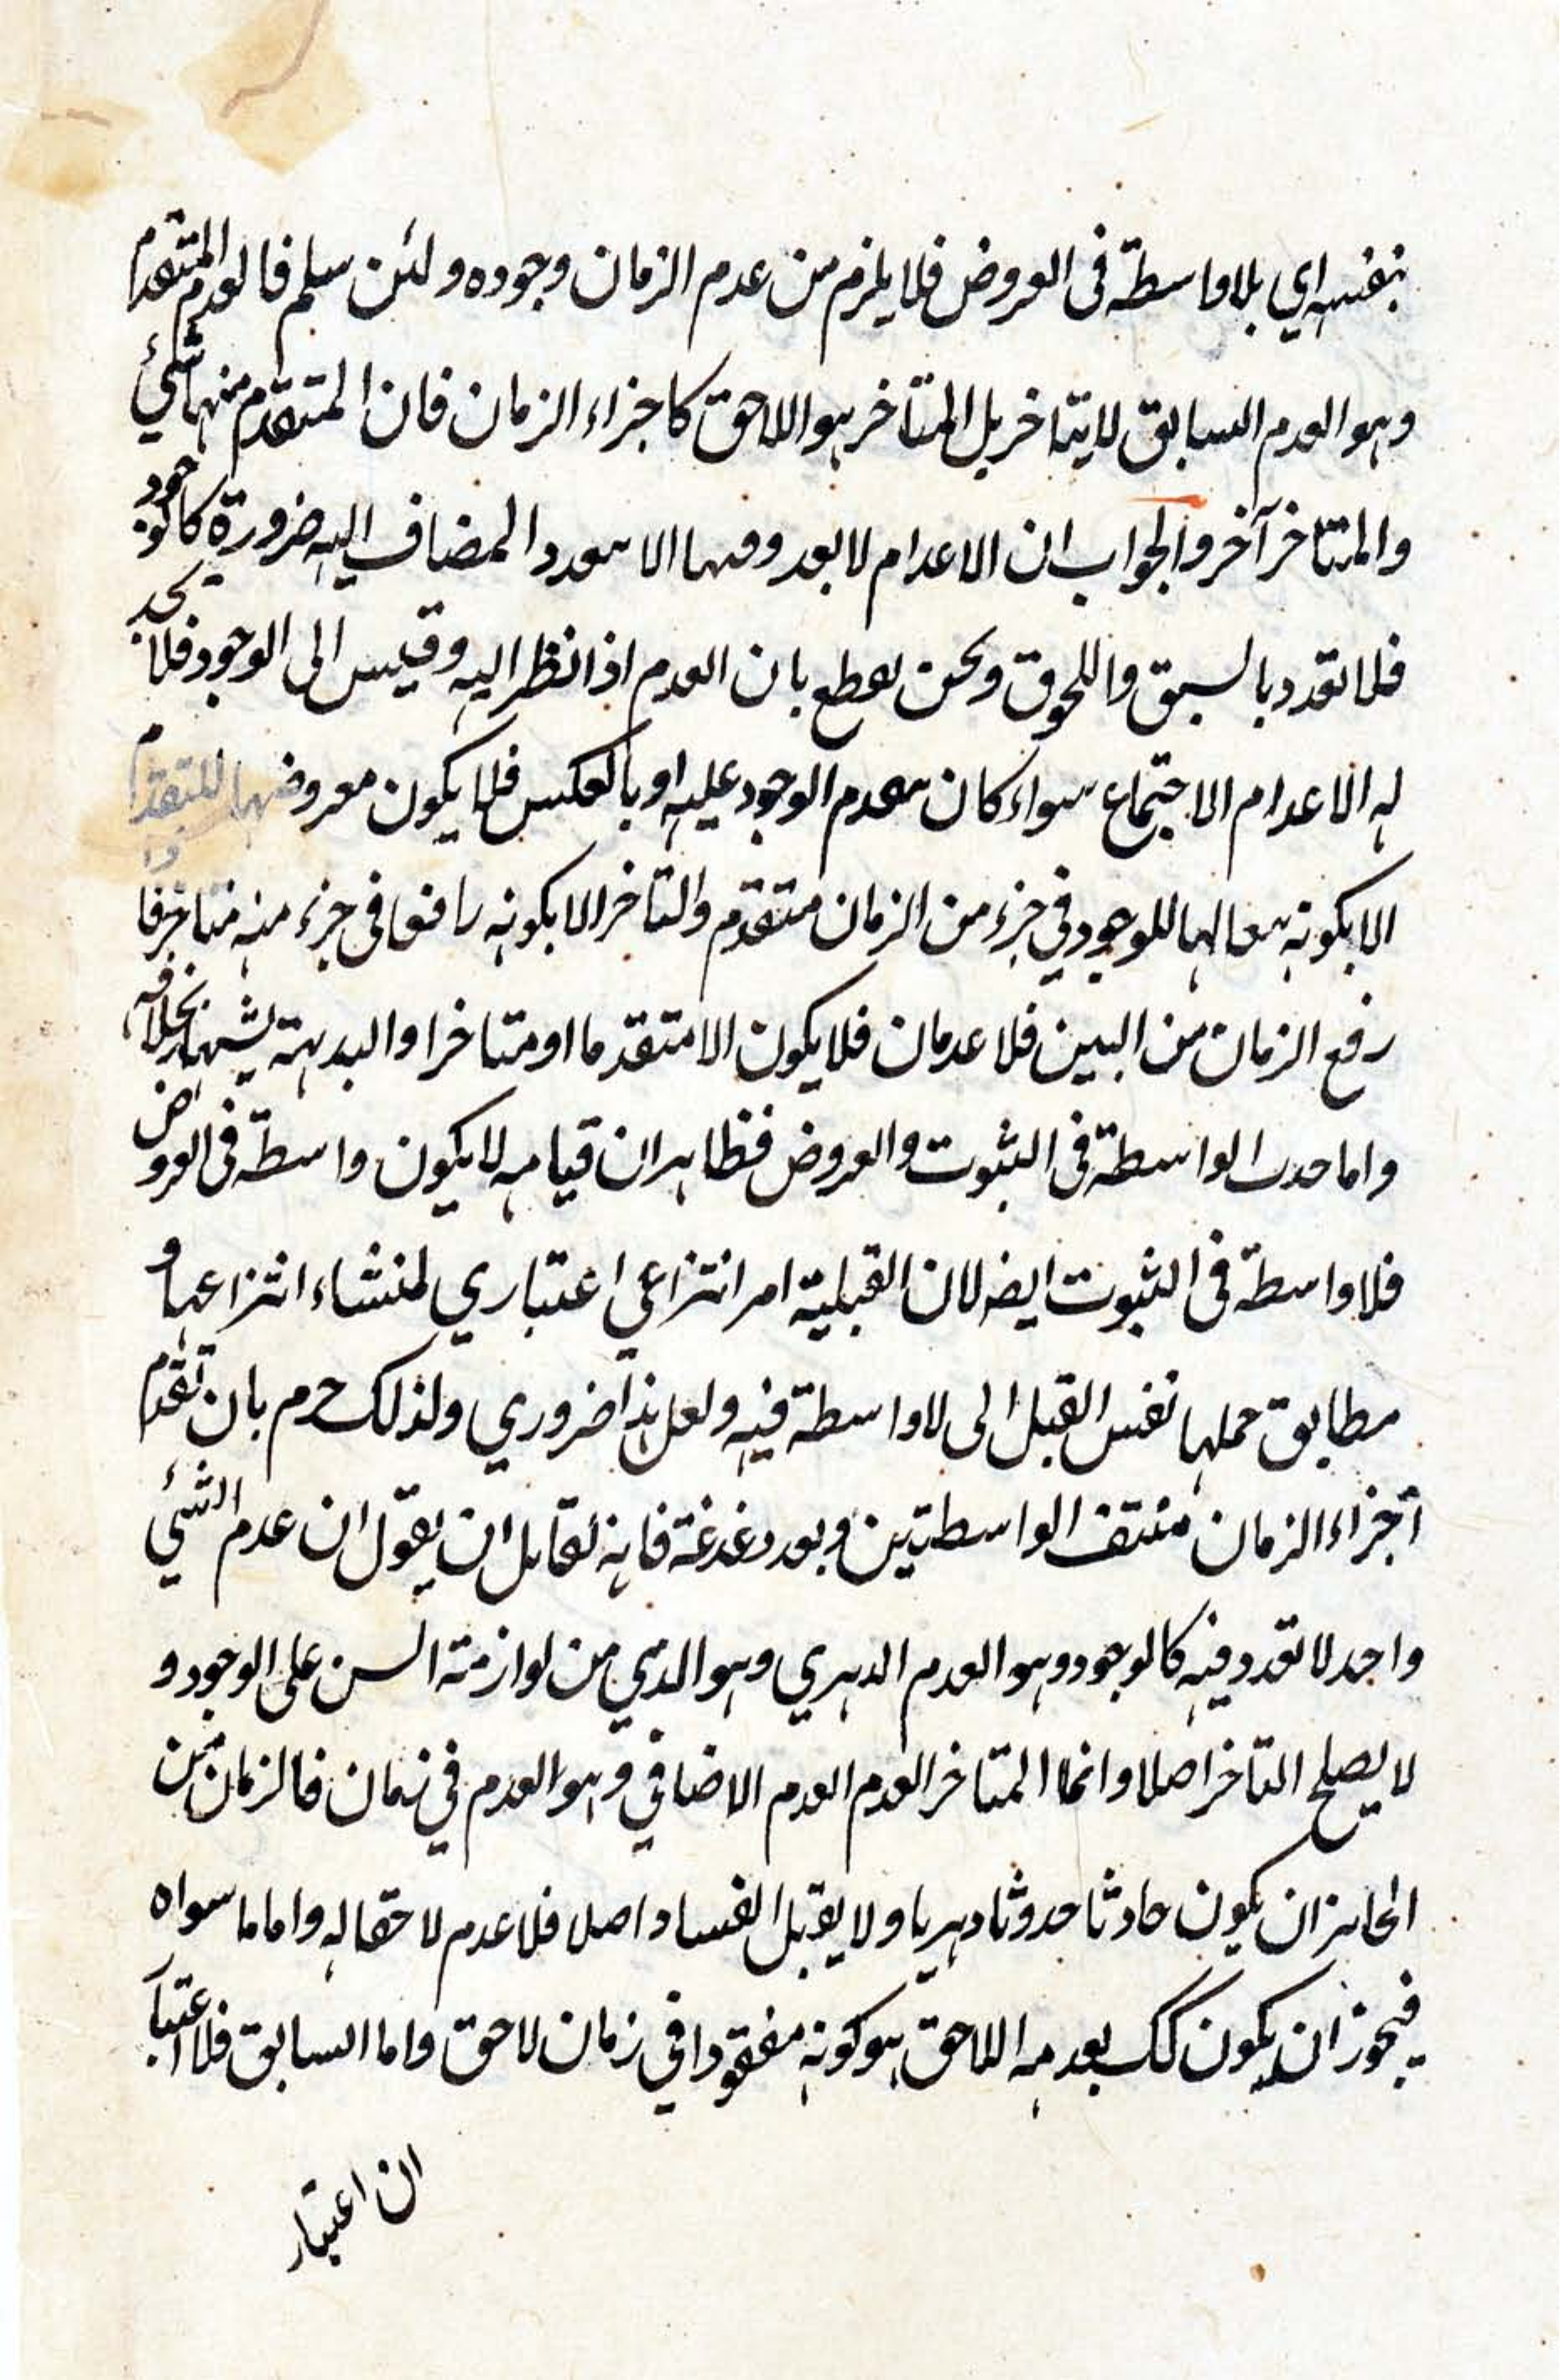 بنفسه اي بلا واسطة في العروض فلا يلزم من عدم الزمان وجوده ولئن سلم فالعدم المتقدم
وهو العدم السابق لا يتاخر بل المتاخر هو اللاحق كاجزاء الزمان فان المتقدم منها شئ
والمتاخر آخر والجواب ان الاعدام لا تعدد فيها الا بتعدد المضاف اليه ضرورة كالوجود
فلا تعدد بالسبق واللحوق ونحن نقطع بان العدم اذا نظر اليه وقيس الى الوجود فلا نجد
له الا عدام الاجتماع سواء كان بتقدم الوجود عليه او بالعكس فلا يكون معروضها للتقدم
الا بكونه للوجود في جزء من الزمان متقدم والتاخر الا بكونه رافعا في جزء منه متاخر فا
رفع الزمان من البين فلا عدمان فلا يكون الا متقدما او متاخرا والبديهة يشهد بخلافه
واما حديث الواسطة في الثبوت والعروض فظاهر ان قيامه لا يكون واسطة في العروض
فلا واسطة في الثبوت ايضا لان القبلية امر انتزاعي اعتباري لمنشاء انتزاعها و
مطابق حملها نفس القبل الى لا واسطة فيه ولعل هذا ضروري ولذلك جزم بان تقدم
اجزاء الزمان منتف الواسطتين وبعد دغدغة فانه لقايل ان يقول ان عدم الشئ
واحد لا تعدد فيه كالوجود وهو العدم الدهري وهو الذي من لوازمه السبق على الوجود و
لا يصلح التاخر اصلا وانما المتاخر العدم العدم الاضافي وهو العدم في زمان فالزمان من
الجايز ان يكون حادثا حدوثا دهريا ولا يقبل الفساد اصلا فلا عدم لاحقا له واما ما سواه
فيجوز ان يكون كك بعدمه اللاحق هو كونه مفقودا في زمان لاحق واما السابق فلا اعتبا
ان اعتبار